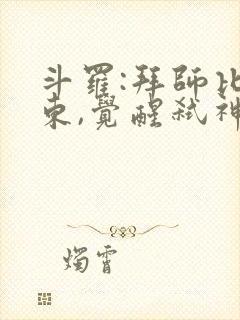 斗羅:拜師比
東,覺醒弒神
燭霄